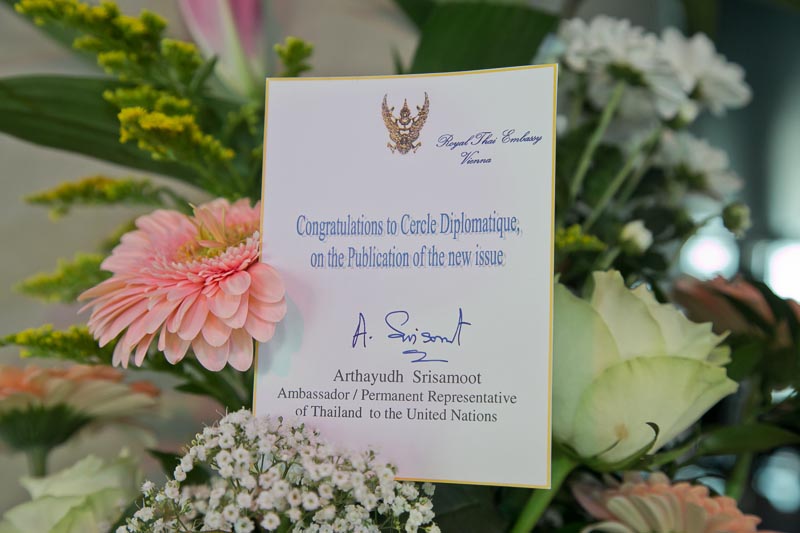 Royal Thai Embassy
Vienna
Congratulations to Cercle Diplomatique,
on the Publication of the new issue
A. Srisamoot
Arthayudh Srisamoot
Ambassador / Permanent Representative
of Thailand to the United Nations